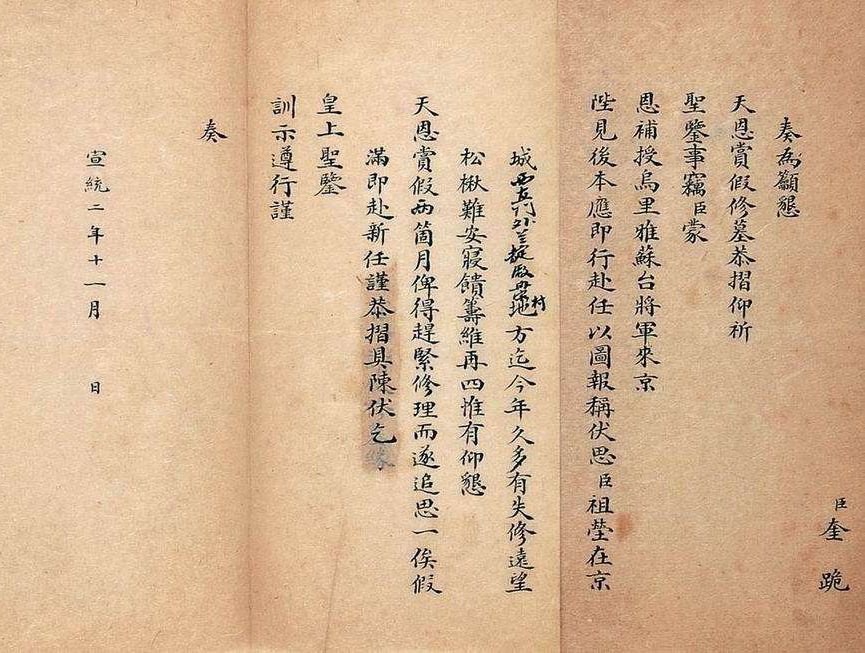 臣奎 跪
奏為籲懇
天恩賞假修墓恭摺仰祈
聖鑒事竊臣蒙
恩補授烏里雅蘇台將軍來京
陛見後本應即行赴任以圖報稱伏思臣祖塋在京
城西直门外村地方迄今年久多有失修遠望
松楸難安寢饋籌維再四惟有仰懇
天恩賞假兩箇月俾得趕緊修理而遂追思一俟假
滿即赴新任謹恭摺具陳伏乞
皇上聖鑒
訓示遵行謹
奏
宣統二年十一月 日